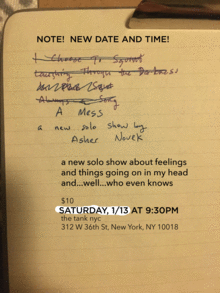 NOTE! NEW DATE AND TIME!
I Choose To
Laughing Through the Darkness
Always a Song
A Mess
a new solo show by
Asher Novek
a new solo show about feelings
and things going on in my head
and...well...who even knows
$10
SATURDAY, 1/13 AT 9:30PM
the tank nyc
312 W 36th St, New York, NY 10018